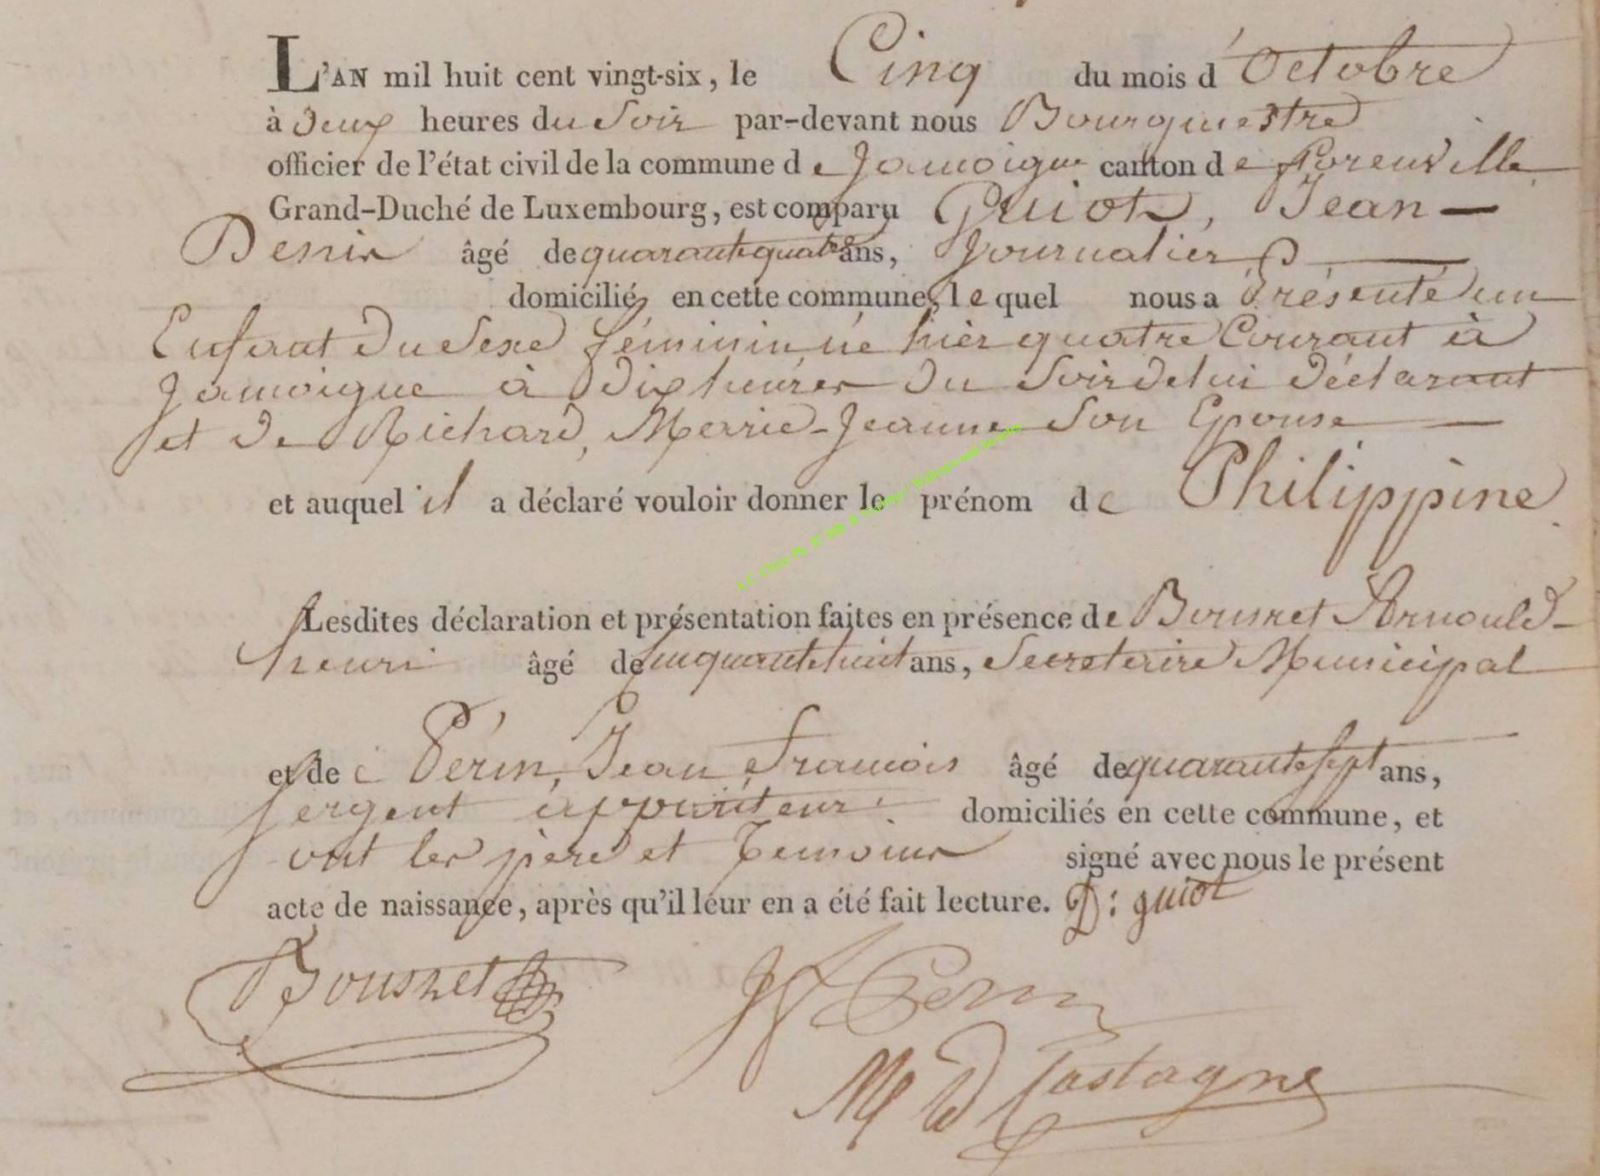 L'AN mil huit cent vingt-six, le Cinq du mois d'Octobre
à deux heures du Soir par-devant nous Bourgmestre
officier de l'état civil de la commune de Jamoigne canton de florenville
Grand-Duché de Luxembourg, est comparu Guiot, Jean-
Denis âgé de quarante quatre ans, Journalier
domicilié en cette commune, lequel nous a présenté un
Enfant du Sexe féminin né hier quatre Courant à
Jamoigne à dix heures du Soir de lui déclarant
et de Richard, Marie-Jeanne Son Epouse
et auquel il a déclaré vouloir donner le prénom de Philippine
Lesdites déclaration et présentation faites en présence de Arnould-
henri âgé de cinquante huit ans, Secretaire Municipal
et de Périn, Jean françois âgé de quarante sept ans,
sergent appariteur domiciliés en cette commune, et
ont les père et Temoins signé avec nous le présent
acte de naissance, après qu'il leur en a été fait lecture. D: guiot
JF Perin
Castagne